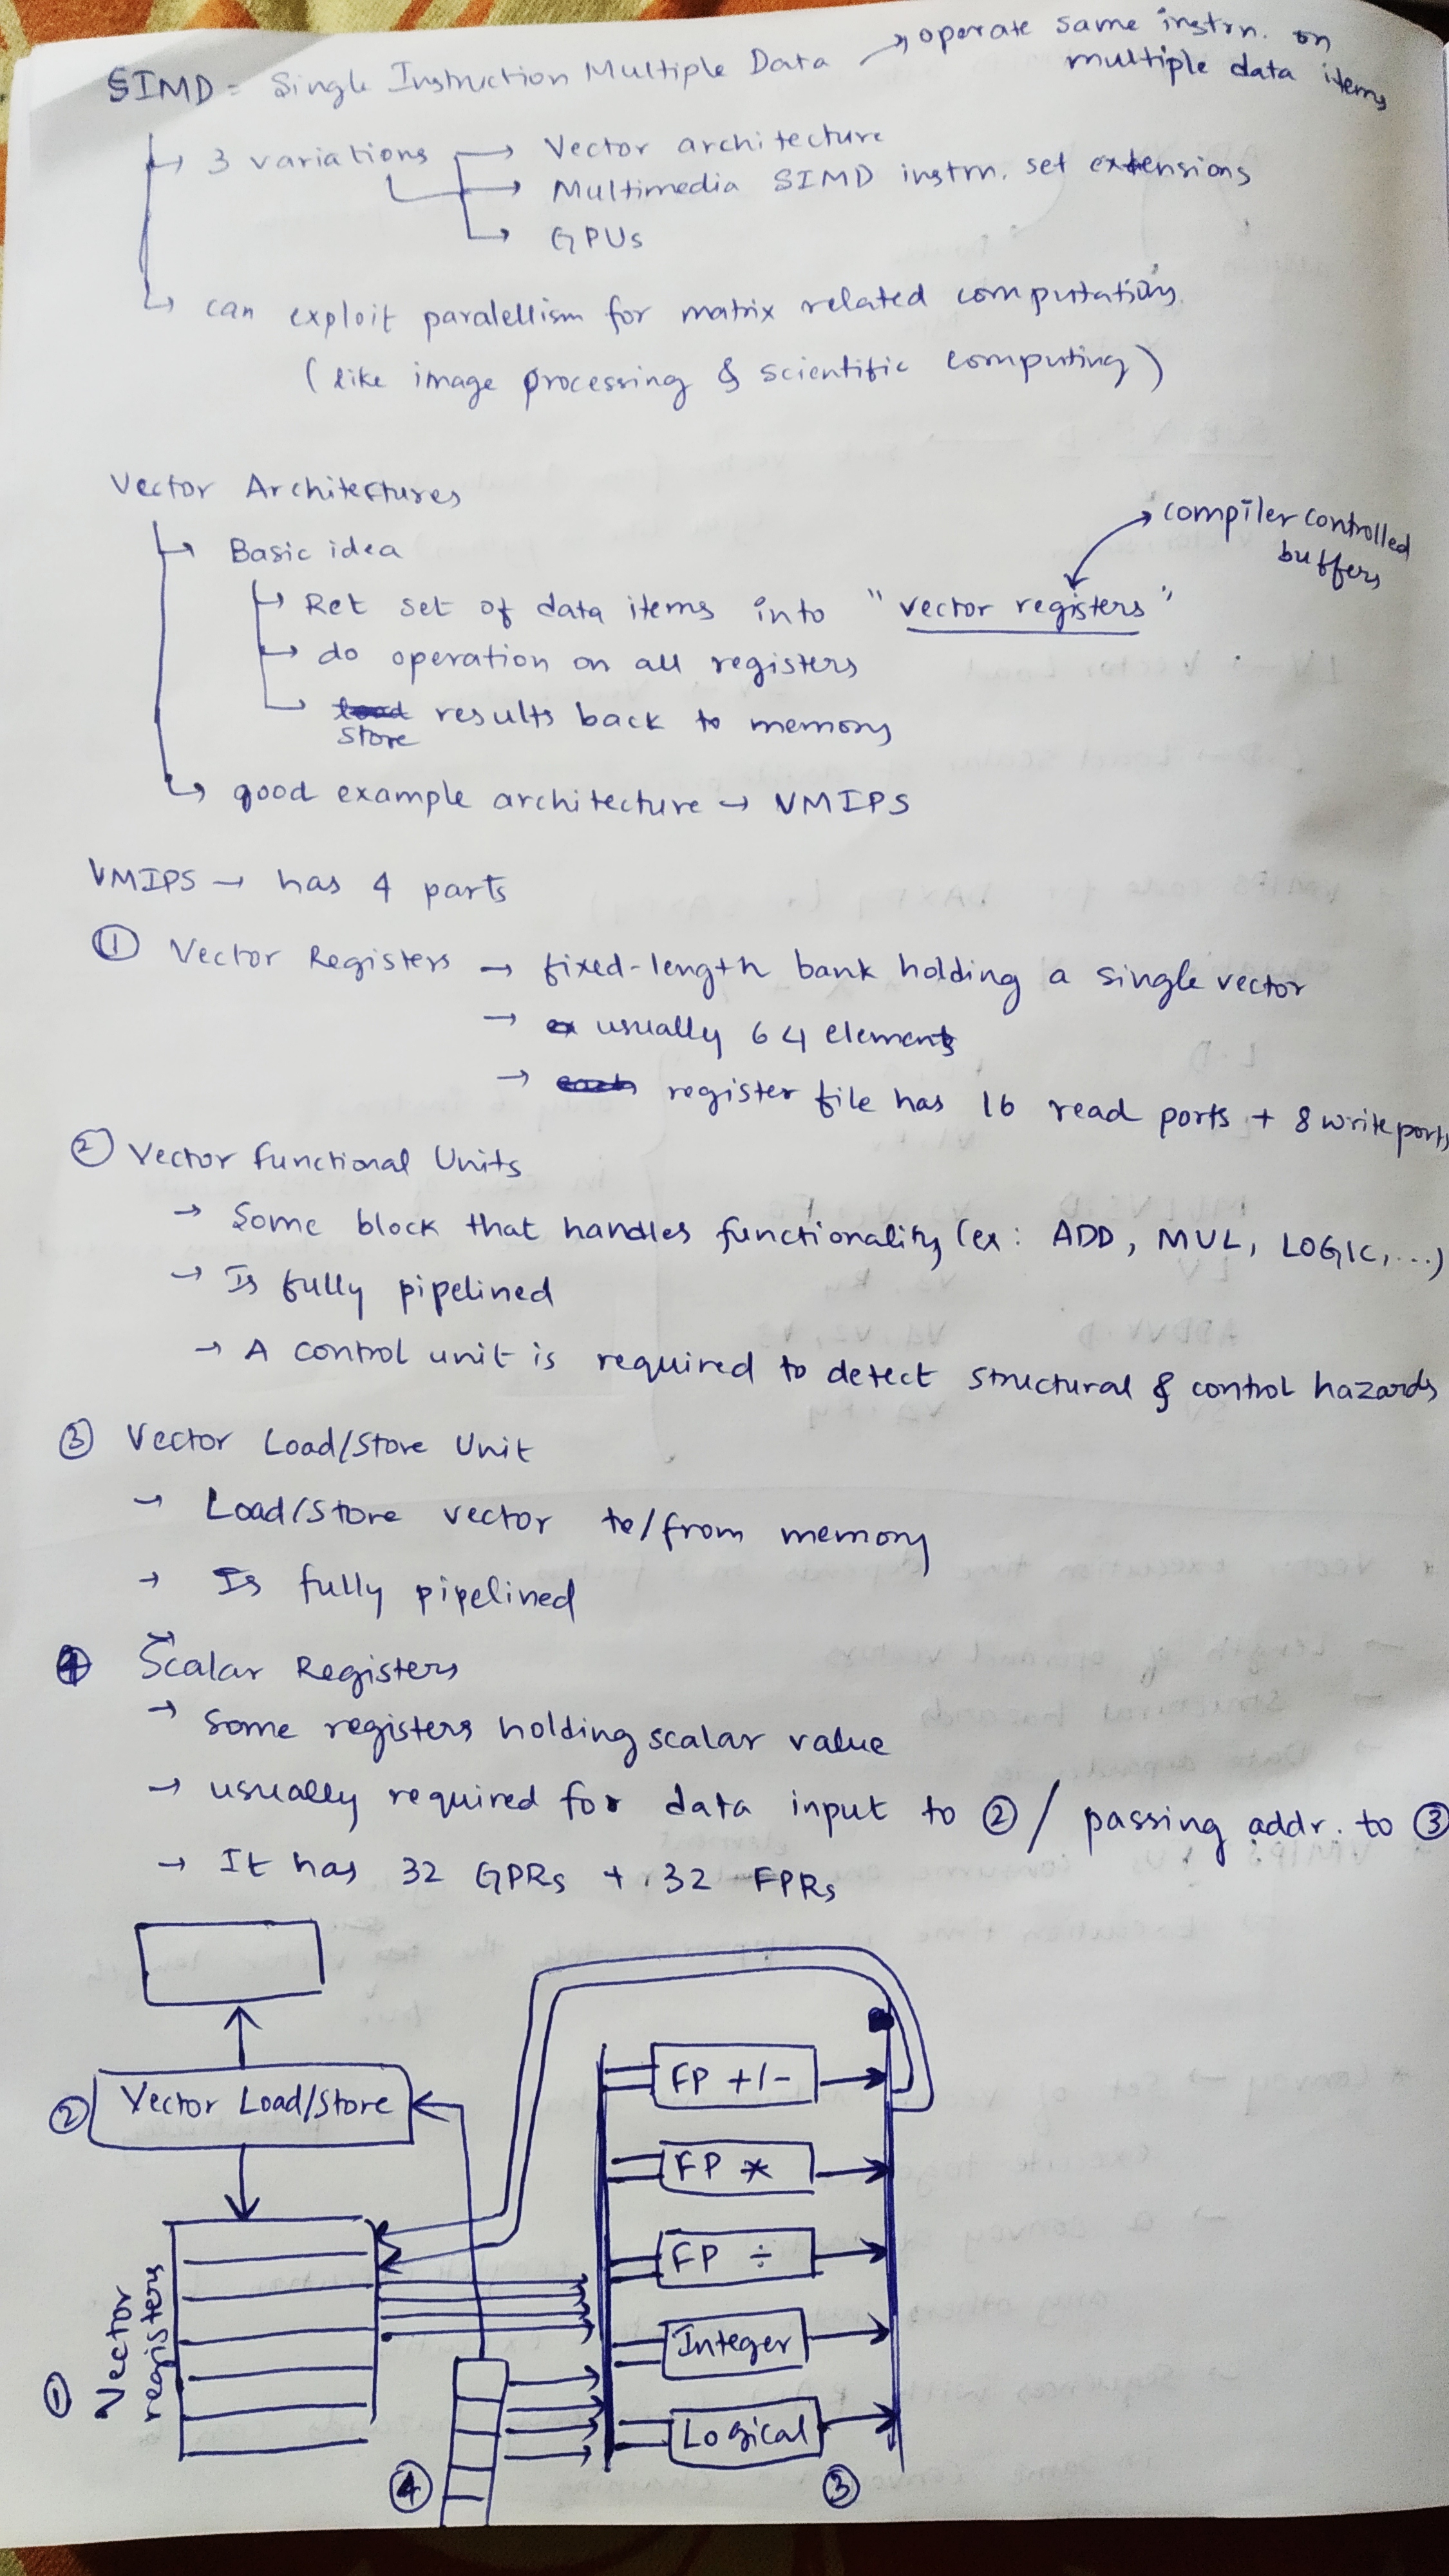 SIMD = Single Instruction Multiple Data → operate same instrn. on
multiple data items
↳ 3 variations → Vector architecture
→ Multimedia SIMD instrn. set extensions
↳ GPUs
↳ can exploit paralellism for matrix related computations
(like image processing & scientific computing)
Vector Architectures
↳ Basic idea
compiler controlled
buffers
↳ Ret set of data items into "vector registers"
→ do operation on all registers
↳ load results back to memory
store
↳ good example architecture → VMIPS
VMIPS → has 4 parts
① Vector Registers → fixed-length bank holding a single vector
→ ex usually 64 elements
→ each register file has 16 read ports + 8 write ports
② Vector Functional Units
→ Some block that handles functionality (ex: ADD, MUL, LOGIC,...)
→ Is fully pipelined
→ A control unit is required to detect structural & control hazards
③ Vector Load/Store Unit
→ Load/Store vector to/from memory
→ Is fully pipelined
④ Scalar Registers
→ Some registers holding scalar value
→ usually required for data input to ② / passing addr. to ③
→ It has 32 GPRs + 32 FPRs
② Vector Load/Store
FP +/-
FP *
FP ÷
Integer
Logical
① Vector
registers
④
③